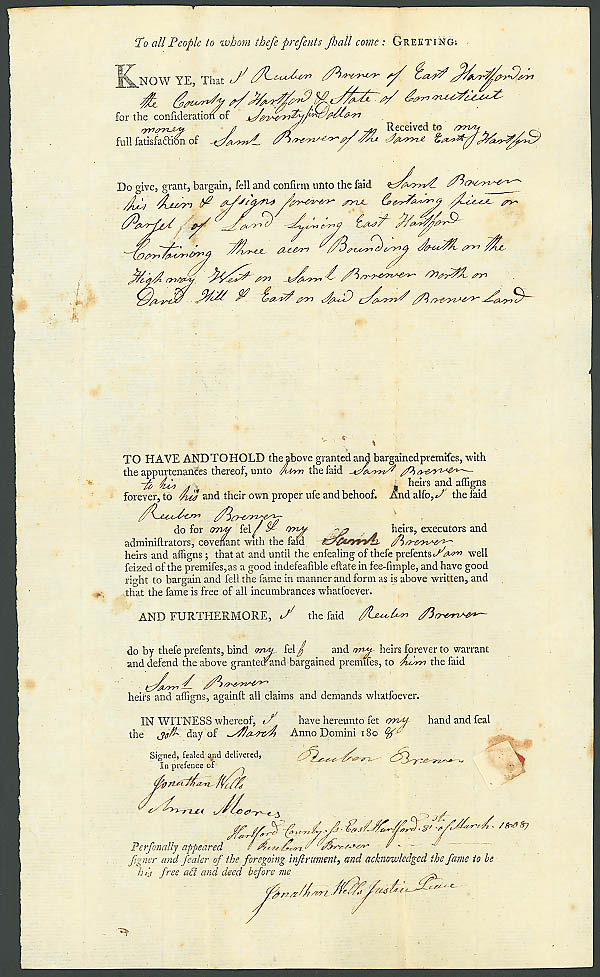 To all People to whom theſe preſents ſhall come: GREETING:
KNOW YE, That I Reuben Brewer of East Hartford in
the County of Hartford & State of Connecticut
for the conſideration of Seventy five Dollars
money Received to my
full ſatisfaction of Saml Brewer of the Same East Hartford
Do give, grant, bargain, ſell and confirm unto the ſaid Saml Brewer
his heirs & aſsigns forever one Certaing piece or
Parsel of Land Lyining East Hartford
Containing three acers Bounding South on the
High way West on Saml Brrewer North on
David Hill & East on said Saml Brewer Land
TO HAVE AND TO HOLD the above granted and bargained premiſes, with
the appurtenances thereof, unto him the ſaid Saml Brewer
to his heirs and aſſigns
forever, to his and their own proper uſe and behoof. And alſo, I the ſaid
Reuben Brewer
do for my ſelf & my heirs, executors and
adminiſtrators, covenant with the ſaid Saml Brewer
heirs and aſſigns; that at and until the enſealing of theſe preſents I am well
ſeized of the premiſes, as a good indefeaſible eſtate in fee-ſimple, and have good
right to bargain and ſell the ſame in manner and form as is above written, and
that the ſame is free of all incumbrances whatſoever.
AND FURTHERMORE, I the ſaid Reuben Brewer
do by theſe preſents, bind my ſelf and my heirs forever to warrant
and defend the above granted and bargained premiſes, to him the ſaid
Saml Brewer
heirs and aſſigns, againſt all claims and demands whatſoever.
IN WITNESS whereof, I have hereunto ſet my hand and ſeal
the 30th day of March Anno Domini 1808
Signed, ſealed and delivered, Reuben Brewer
In preſence of
Jonathan Wells
Anna Moores
Hartford County ss. East Hartford 31st of March 1808
Perſonally appeared Reuben Brewer
ſigner and ſealer of the foregoing inſtrument, and acknowledged the ſame to be
his free act and deed before me
Jonathan Wells Justice Peace